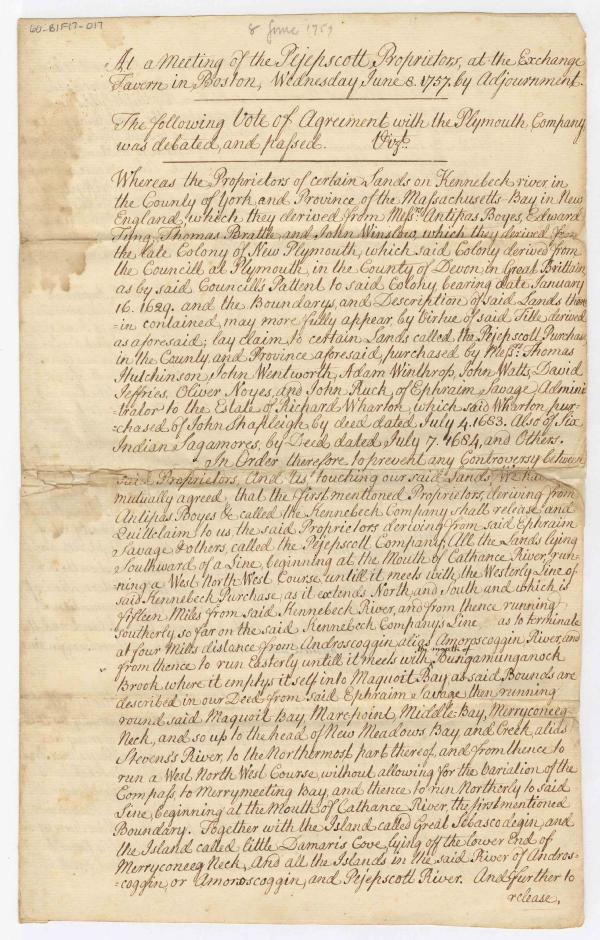 60-B1F17-017
8 June 1757
At a Meeting of the Pejepscott Proprietors, at the Exchange
Tavern in Boston, Wednesday June 8. 1757. by Adjournment.
The following Vote of Agreement with the Plymouth Company
was debated, and passed. Vizt.
Whereas the Proprietors of certain Lands on Kennebeck river, in
the County of York, and Province of the Massachusetts Bay in New
England, which they derived from Messrs. Antipas Boyes, Edward
Tyng, Thomas Brattle and John Winslow, which they derived from
the late Colony of New Plymouth, which said Colony derived from
the Councill at Plymouth, in the County of Devon in Great Brittain,
as by said Councill's Pattent to said Colony, bearing date January
16. 1629. and the Boundarys, and Description of said Lands there
=in contained, may more fully appear, by Virtue of said Title, derived
as aforesaid; lay claim to certain Lands called the Pejepscott Purchase
in the County and Province aforesaid, purchased by Messrs. Thomas
Hutchinson, John Wentworth, Adam Winthrop, John Watts, David
Jeffries, Oliver Noyes, and John Ruck, of Ephraim Savage, Adminis
trator to the Estate of Richard Wharton, which said Wharton pur=
=chased of John Shapleigh by deed dated July 4. 1683. Also of Six
Indian Sagamores, by Deed dated July 7. 1684, and Others.
In Order therefore to prevent any Controversy between
said Proprietors, And Us, touching our said Lands, We have
mutually agreed, that the first mentioned Proprietors, deriving from
Antipas Boyes & called the Kennebeck Company shall release, and
Quittclaim to us, the said Proprietors deriving from said Ephraim
Savage & others, called the Pejepscott Company; All the Lands lying
Southward of a Line, beginning at the Mouth of Cathance River, run=
=ning a West North West Course untill it meets with the Westerly Line of
said Kennebeck Purchase, as it extends North and South and which is
fifteen Miles from said Kennebeck River, and from thence running
Southerly so far on the said Kennebeck Companys Line as to terminate
at four Miles distance from Androscoggin alias Amoroscoggin River, and
from thence to run Easterly untill it meets with the mouth of Bungamunganock
Brook where it emptys it self into Maquoit Bay, as said Bounds are
described in our Deed from said Ephraim Savage, then running
round said Maquoit Bay, Marepoint, Middle Bay, Merryconeeg
Neck, and so up to the head of New Meadows Bay, and Creek, alias
Stevens's River, to the Northermost part thereof, and from thence to
run a West North West Course, without allowing for the Variation of the
Compass to Merrymeeting Bay, and thence to run Northerly to said
Line, beginning at the Mouth of Cathance River, the first mentioned
Boundary. Together with the Island called Great Sebascodegin, and
the Island called little Damaris Cove, lying off the lower End of
Merryconeeg Neck, And all the Islands in the said River of Andros=
=coggin, or Amoroscoggin, and Pejepscott River. And further to
release,